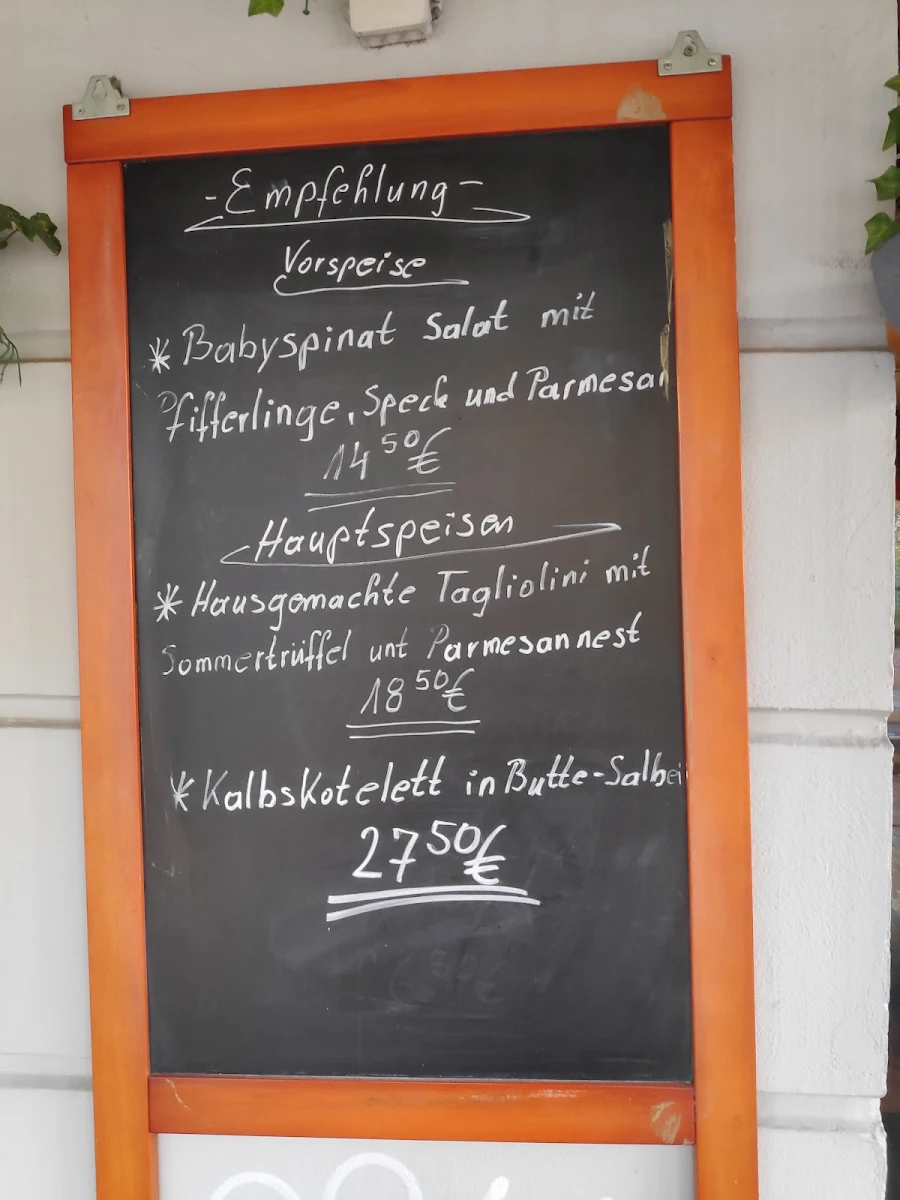 -Empfehlung-
Vorspeise
* Babyspinat Salat mit
Pfifferlinge, Speck und Parmesan
14 50 €
Hauptspeisen
* Hausgemachte Tagliolini mit
Sommertrüffel unt Parmesannest
18 50 €
* Kalbskotelett in Butte-Salbei
27 50 €